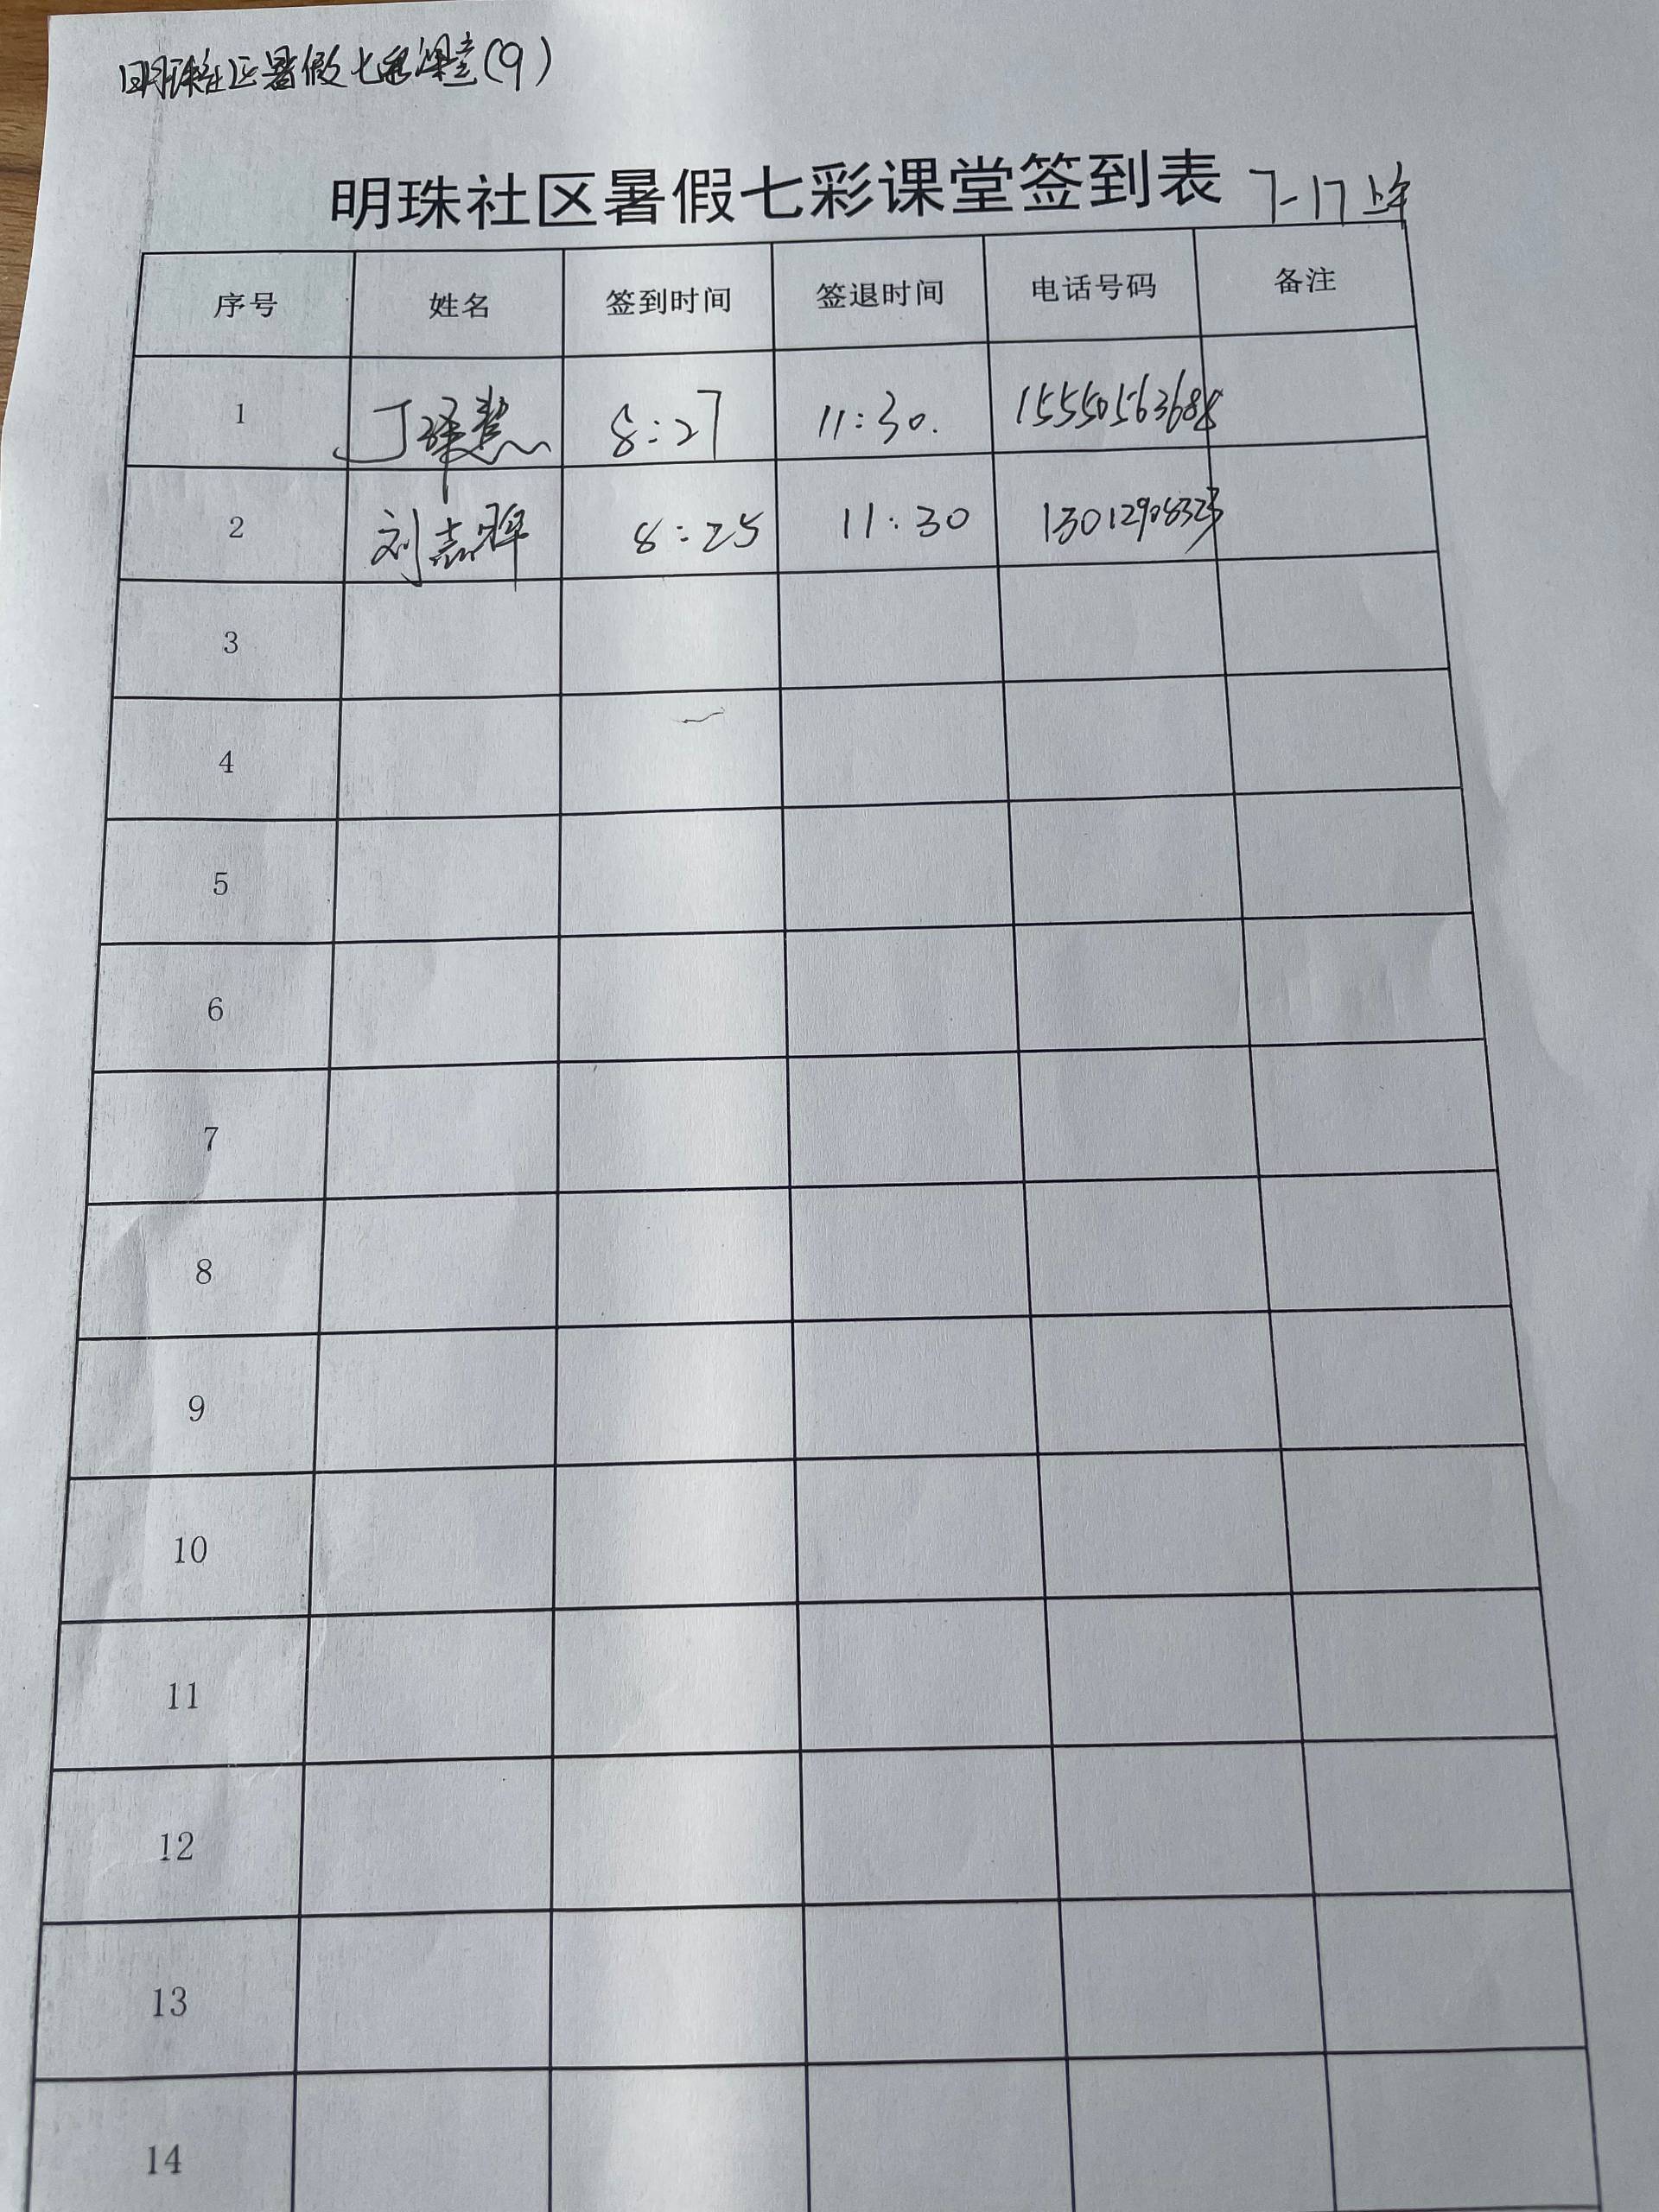 明珠社区暑假七彩课堂(9)
明珠社区暑假七彩课堂签到表 7-17上午
序号 姓名 签到时间 签退时间 电话号码 备注
1 丁译慧 8:27 11:30. 15550563688
2 刘志晖 8:25 11:30 13012908323
3
4
5
6
7
8
9
10
11
12
13
14